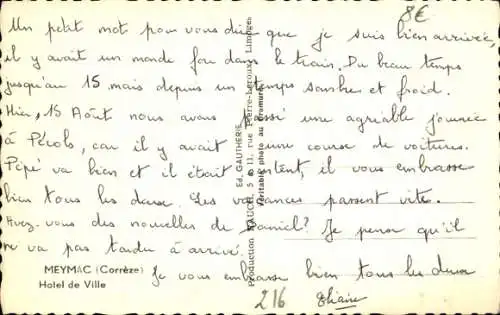 8€
Un petit mot pour vous dire que je suis bien arrivée
il y avait un monde fou dans le train. Du beau temps
jusqu'au 15 mais depuis un temps sombre et froid.
Hier, 15 Août nous avons passé une agréable journée
à Pérols, car il y avait une course de voitures.
Pépé va bien et il était content, il vous embrasse
bien tous les deux. Les vacances passent vite.
Avez-vous des nouvelles de Daniel? Je pense qu'il
ne va pas tarder à arriver.
Je vous embrasse bien tous les deux
MEYMAC (Corrèze)
Hotel de Ville
216
Ed. GAUTHERIE
Production DAUCH, 5 & 11, rue Pierre-Leroux, Limoges
Véritable photo au Bromure